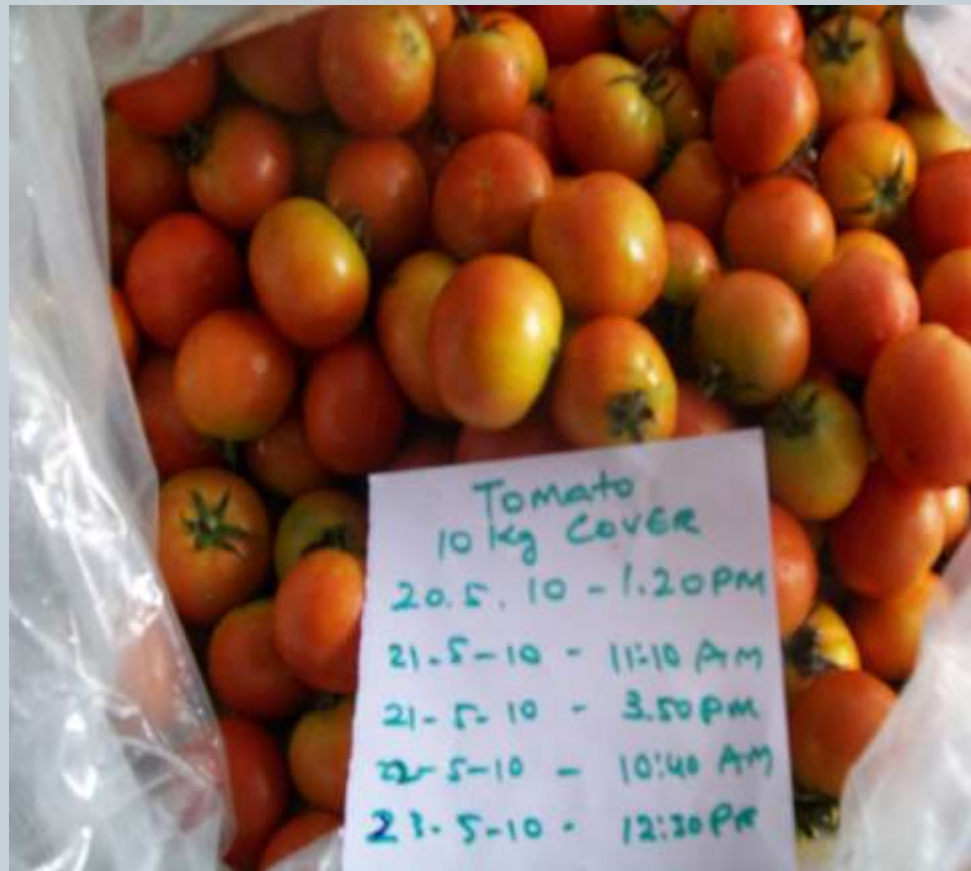 Tomato
10 Kg COVER
20.5.10 - 1.20PM
21-5-10 - 11:10 AM
21-5-10 - 3.50PM
22-5-10 - 10:40 AM
23-5-10 - 12:30PM